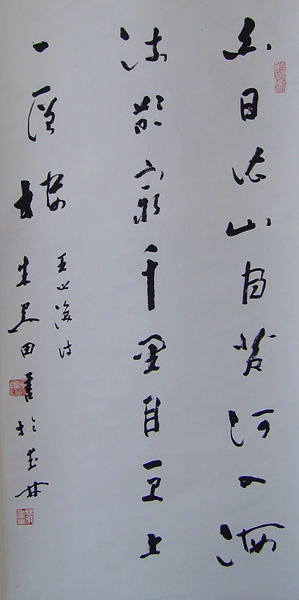 白日依山盡黄河入海
流欲窮千里目更上
一層樓
王之渙诗
朱田書於